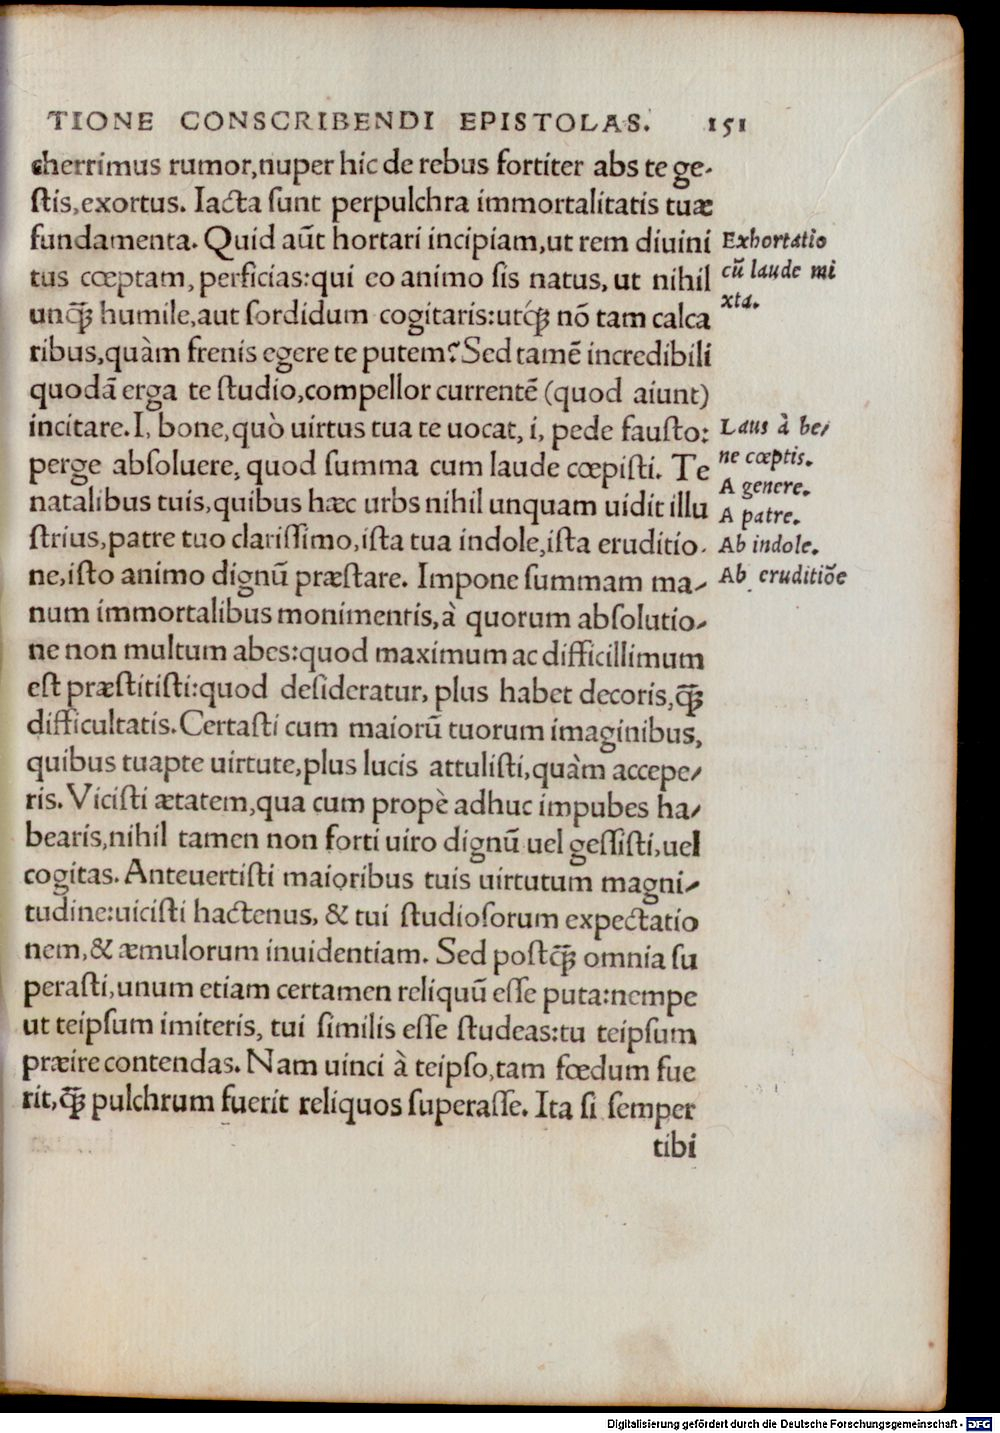 TIONE CONSCRIBENDI EPISTOLAS. 151
cherrimus rumor,nuper hic de rebus fortiter abs te ge-
ſtis,exortus. Iacta ſunt perpulchra immortalitatis tuæ
fundamenta. Quid aūt hortari incipiam,ut rem diuini
tus cœptam, perficias:qui eo animo ſis natus, ut nihil
unq̃ humile,aut ſordidum cogitaris:utq́ꝫ nō tam calca
ribus,quàm frenis egere te putem? Sed tamē incredibili
quodā erga te ſtudio,compellor currentē (quod aiunt)
incitare. I, bone,quò uirtus tua te uocat, i, pede fauſto:
perge abſoluere, quod ſumma cum laude cœpiſti. Te
natalibus tuis,quibus hæc urbs nihil unquam uidit illu
ſtrius,patre tuo clariſſimo,iſta tua indole,iſta eruditio-
ne,iſto animo dignū præſtare. Impone ſummam ma-
num immortalibus monimentis,à quorum abſolutio-
ne non multum abes:quod maximum ac difficillimum
eſt præſtitiſti:quod deſideratur, plus habet decoris,q̃
difficultatis. Certaſti cum maiorū tuorum imaginibus,
quibus tuapte uirtute,plus lucis attuliſti,quàm accepe-
ris. Viciſti ætatem,qua cum propè adhuc impubes ha-
bearis,nihil tamen non forti uiro dignū uel geſſiſti,uel
cogitas. Anteuertiſti maioribus tuis uirtutum magni-
tudine:uiciſti hactenus, & tui ſtudioſorum expectatio
nem,& æmulorum inuidentiam. Sed poſtq̃ omnia ſu
peraſti,unum etiam certamen reliquū eſſe puta:nempe
ut teipſum imiteris, tui ſimilis eſſe ſtudeas:tu teipſum
præire contendas. Nam uinci à teipſo,tam fœdum fue
rit,q̃ pulchrum fuerit reliquos ſuperaſſe. Ita ſi ſemper
tibi
Exhortatio
cū laude mi
xta.
Laus à be-
ne cœptis.
A genere.
A patre.
Ab indole.
Ab eruditiōe
Digitalisierung gefördert durch die Deutsche Forschungsgemeinschaft - DFG